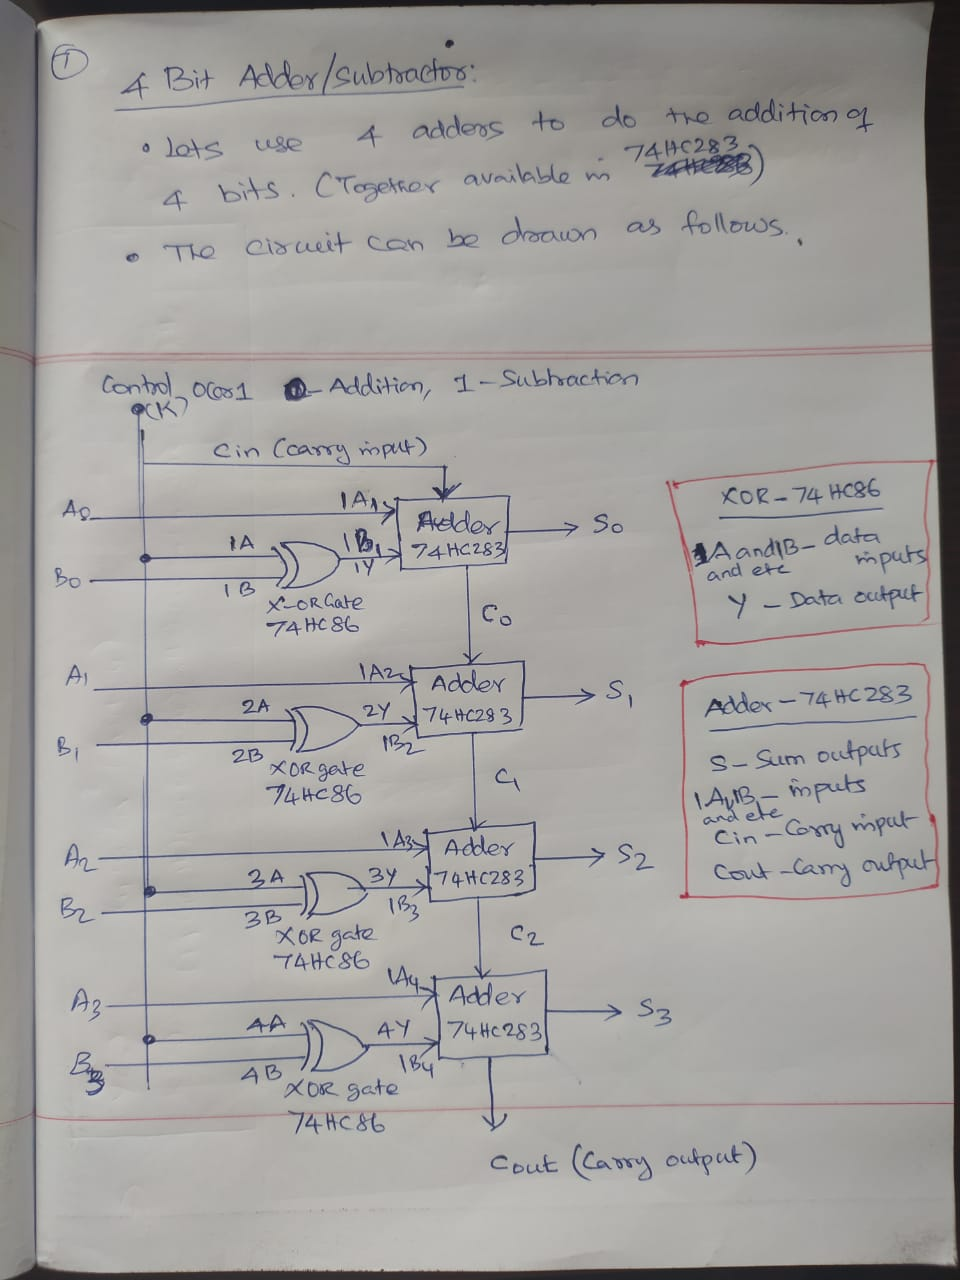 1
4 Bit Adder/Subtractor:
• Lets use 4 adders to do the addition of
4 bits. (Together available in 74HC283)
• The circuit can be drawn as follows.
Control 0 (or) 1 0 - Addition, 1 - Subtraction
(K)
Cin (carry input)
A0 1A1 Adder 74HC283 S0
1A 1B1
B0 1B 1Y
X-OR Gate
74HC86
C0
A1 1A2 Adder S1
2A 2Y 74HC283
B1 2B 1B2
XOR gate
74HC86
C1
A2 1A3 Adder S2
3A 3Y 74HC283
B2 3B 1B3
XOR gate
74HC86
C2
A3 1A4 Adder S3
4A 4Y 74HC283
B3 4B 1B4
XOR gate
74HC86
Cout (Carry output)
XOR - 74HC86
1A and 1B - data
and etc inputs
Y - Data output
Adder - 74HC283
S - Sum outputs
1A, 1B - inputs
and etc
Cin - Carry input
Cout - Carry output